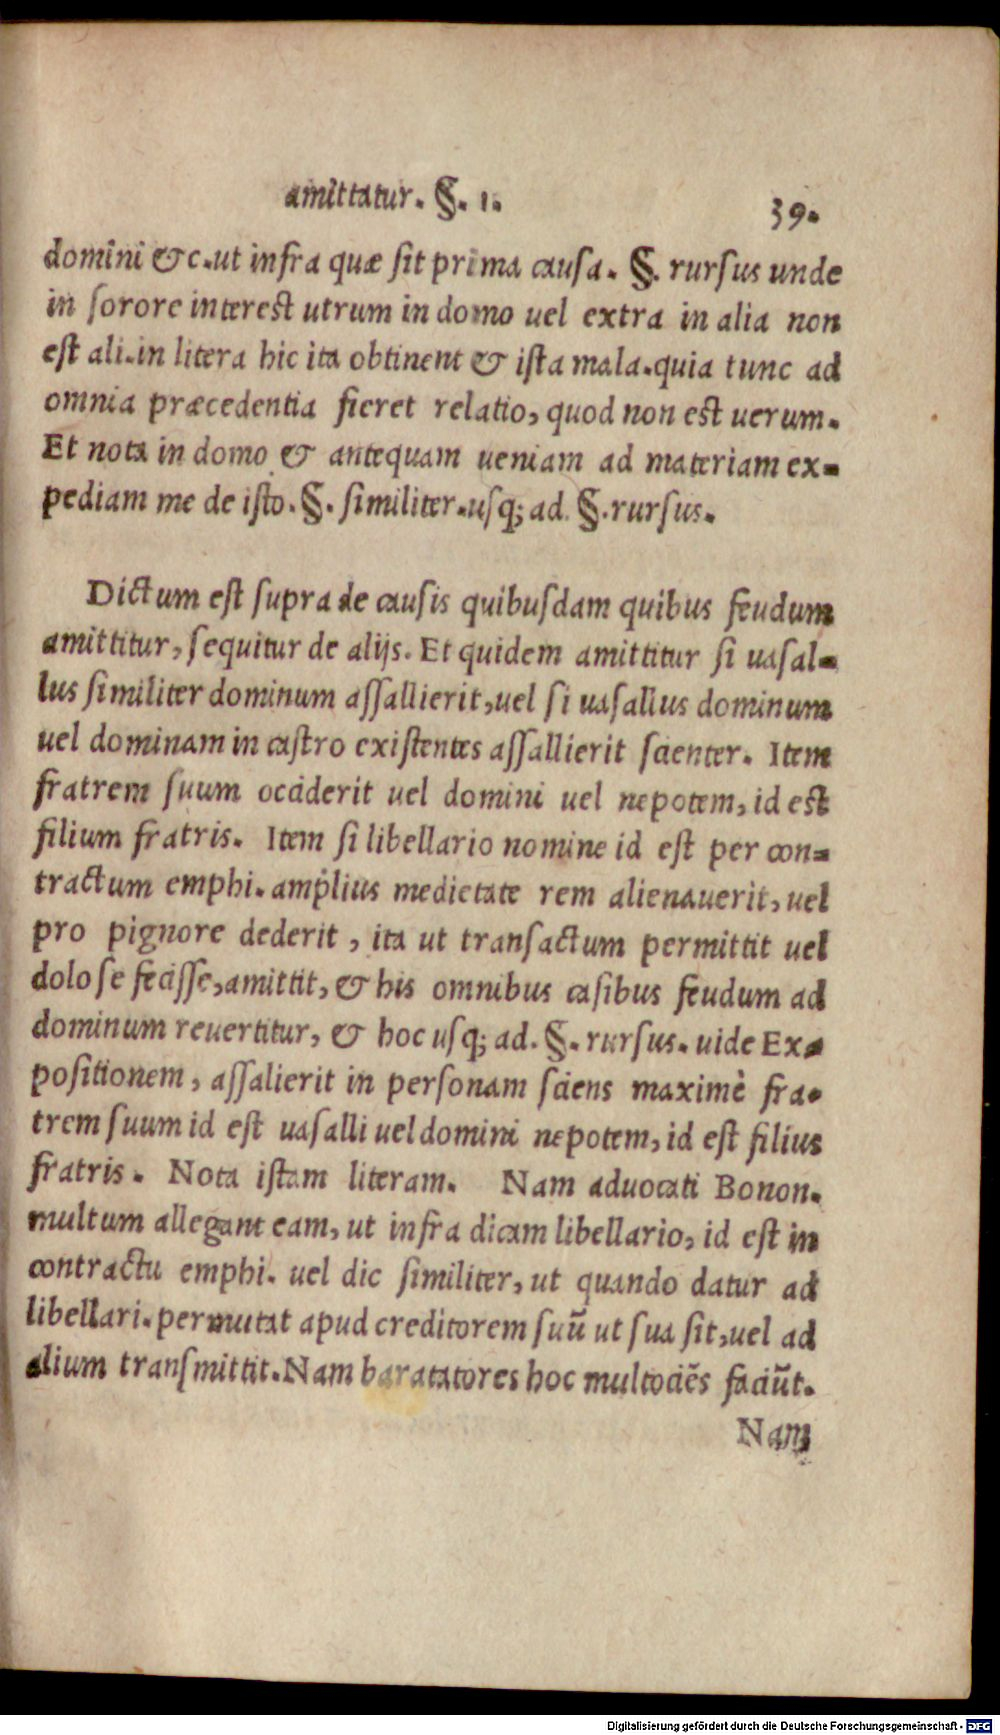 amittatur. §. 1.
39.
domini &c. ut infra quæ sit prima causa. §. rursus unde
in sorore interest utrum in domo uel extra in alia non
est ali. in litera hic ita obtinent & ista mala. quia tunc ad
omnia præcedentia fieret relatio, quod non est uerum.
Et nota in domo & antequam ueniam ad materiam ex-
pediam me de isto. §. similiter. usq; ad. §. rursus.
Dictum est supra de causis quibusdam quibus feudum
amittitur, sequitur de alijs. Et quidem amittitur si uasal-
lus similiter dominum assallierit, uel si uasallus dominum
uel dominam in castro existentes assallierit scienter. Item
fratrem suum occiderit uel domini uel nepotem, id est
filium fratris. Item si libellario nomine id est per con-
tractum emphi. amplius medietate rem alienauerit, uel
pro pignore dederit, ita ut transactum permittit uel
dolose fecisse, amittit, & his omnibus casibus feudum ad
dominum reuertitur, & hoc usq; ad. §. rursus. uide Ex-
positionem, assalierit in personam sciens maximè fra-
trem suum id est uasalli uel domini nepotem, id est filius
fratris. Nota istam literam. Nam aduocati Bonon.
multum allegant eam, ut infra dicam libellario, id est in
contractu emphi. uel dic similiter, ut quando datur ad
libellari. permutat apud creditorem suū ut sua sit, uel ad
alium transmittit. Nam baratatores hoc multociēs faciūt.
Nam
Digitalisierung gefördert durch die Deutsche Forschungsgemeinschaft - DFG